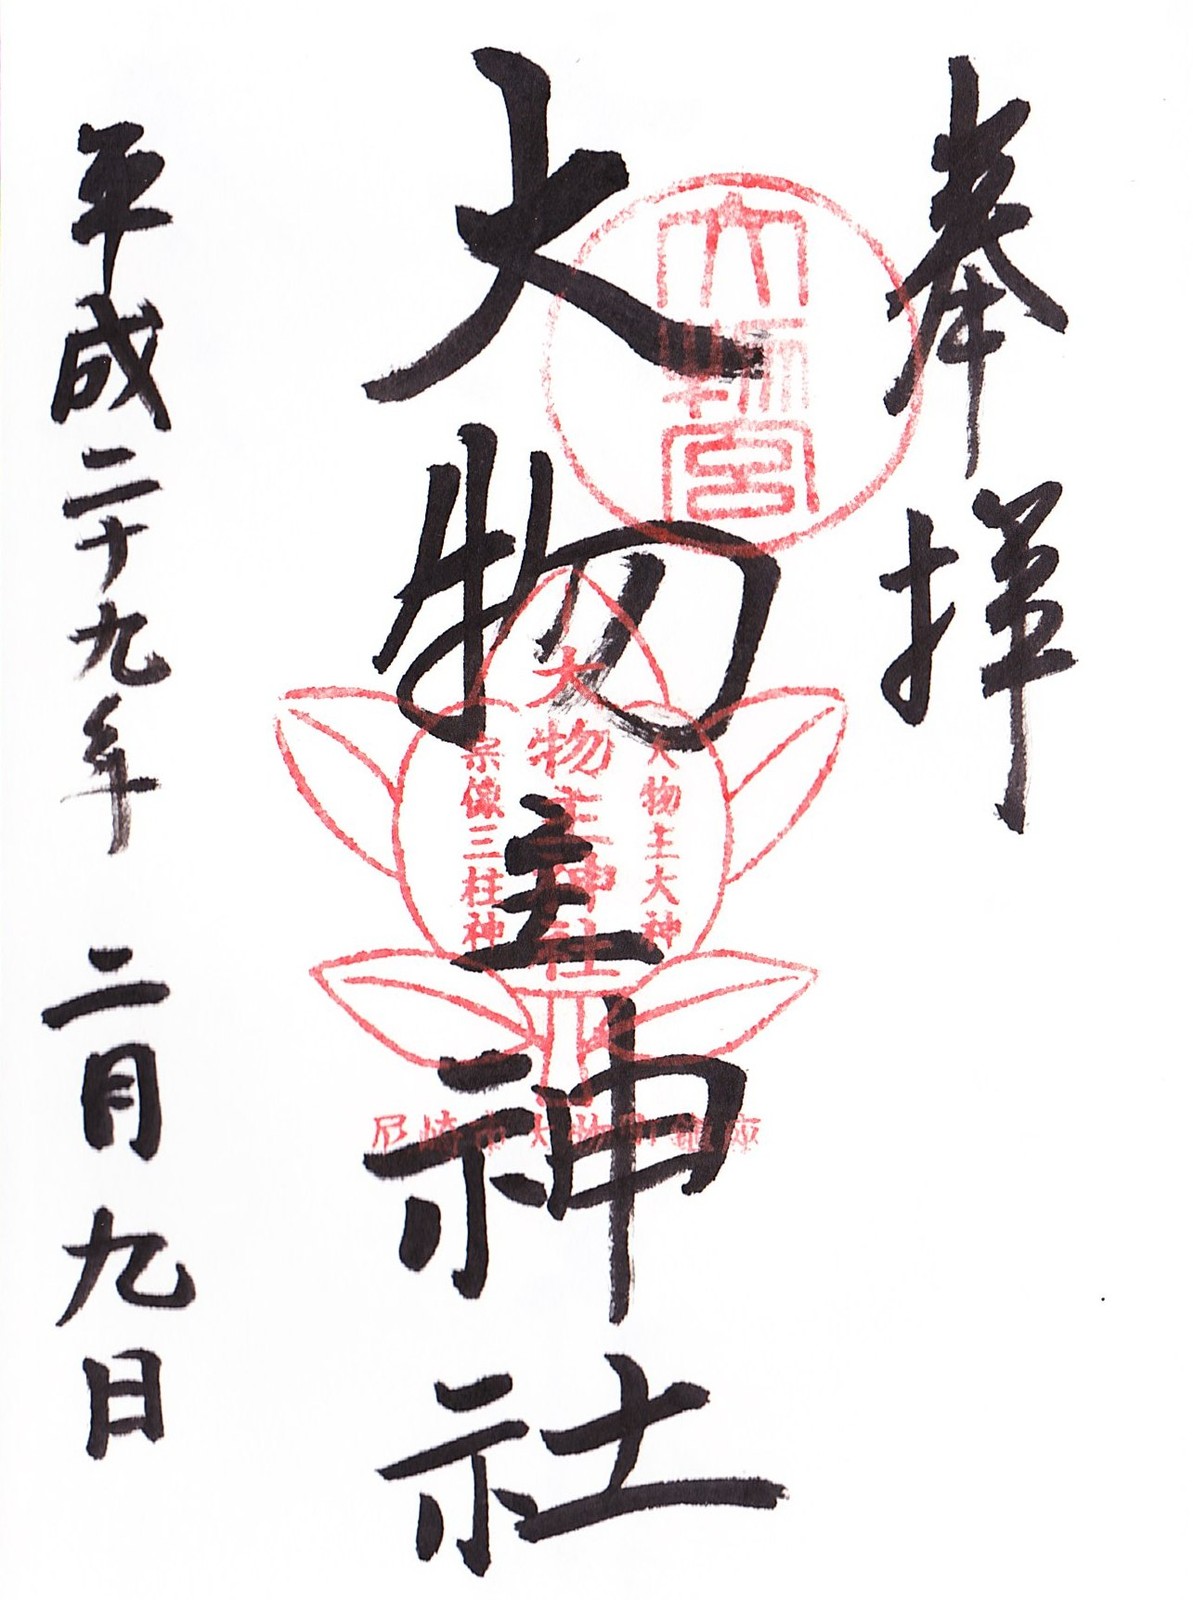 奉拝
大物主神社
平成二十九年 二月九日
大物宮
大物主大神
大物主神社
宗像三柱神
尼崎市大物町鎮座